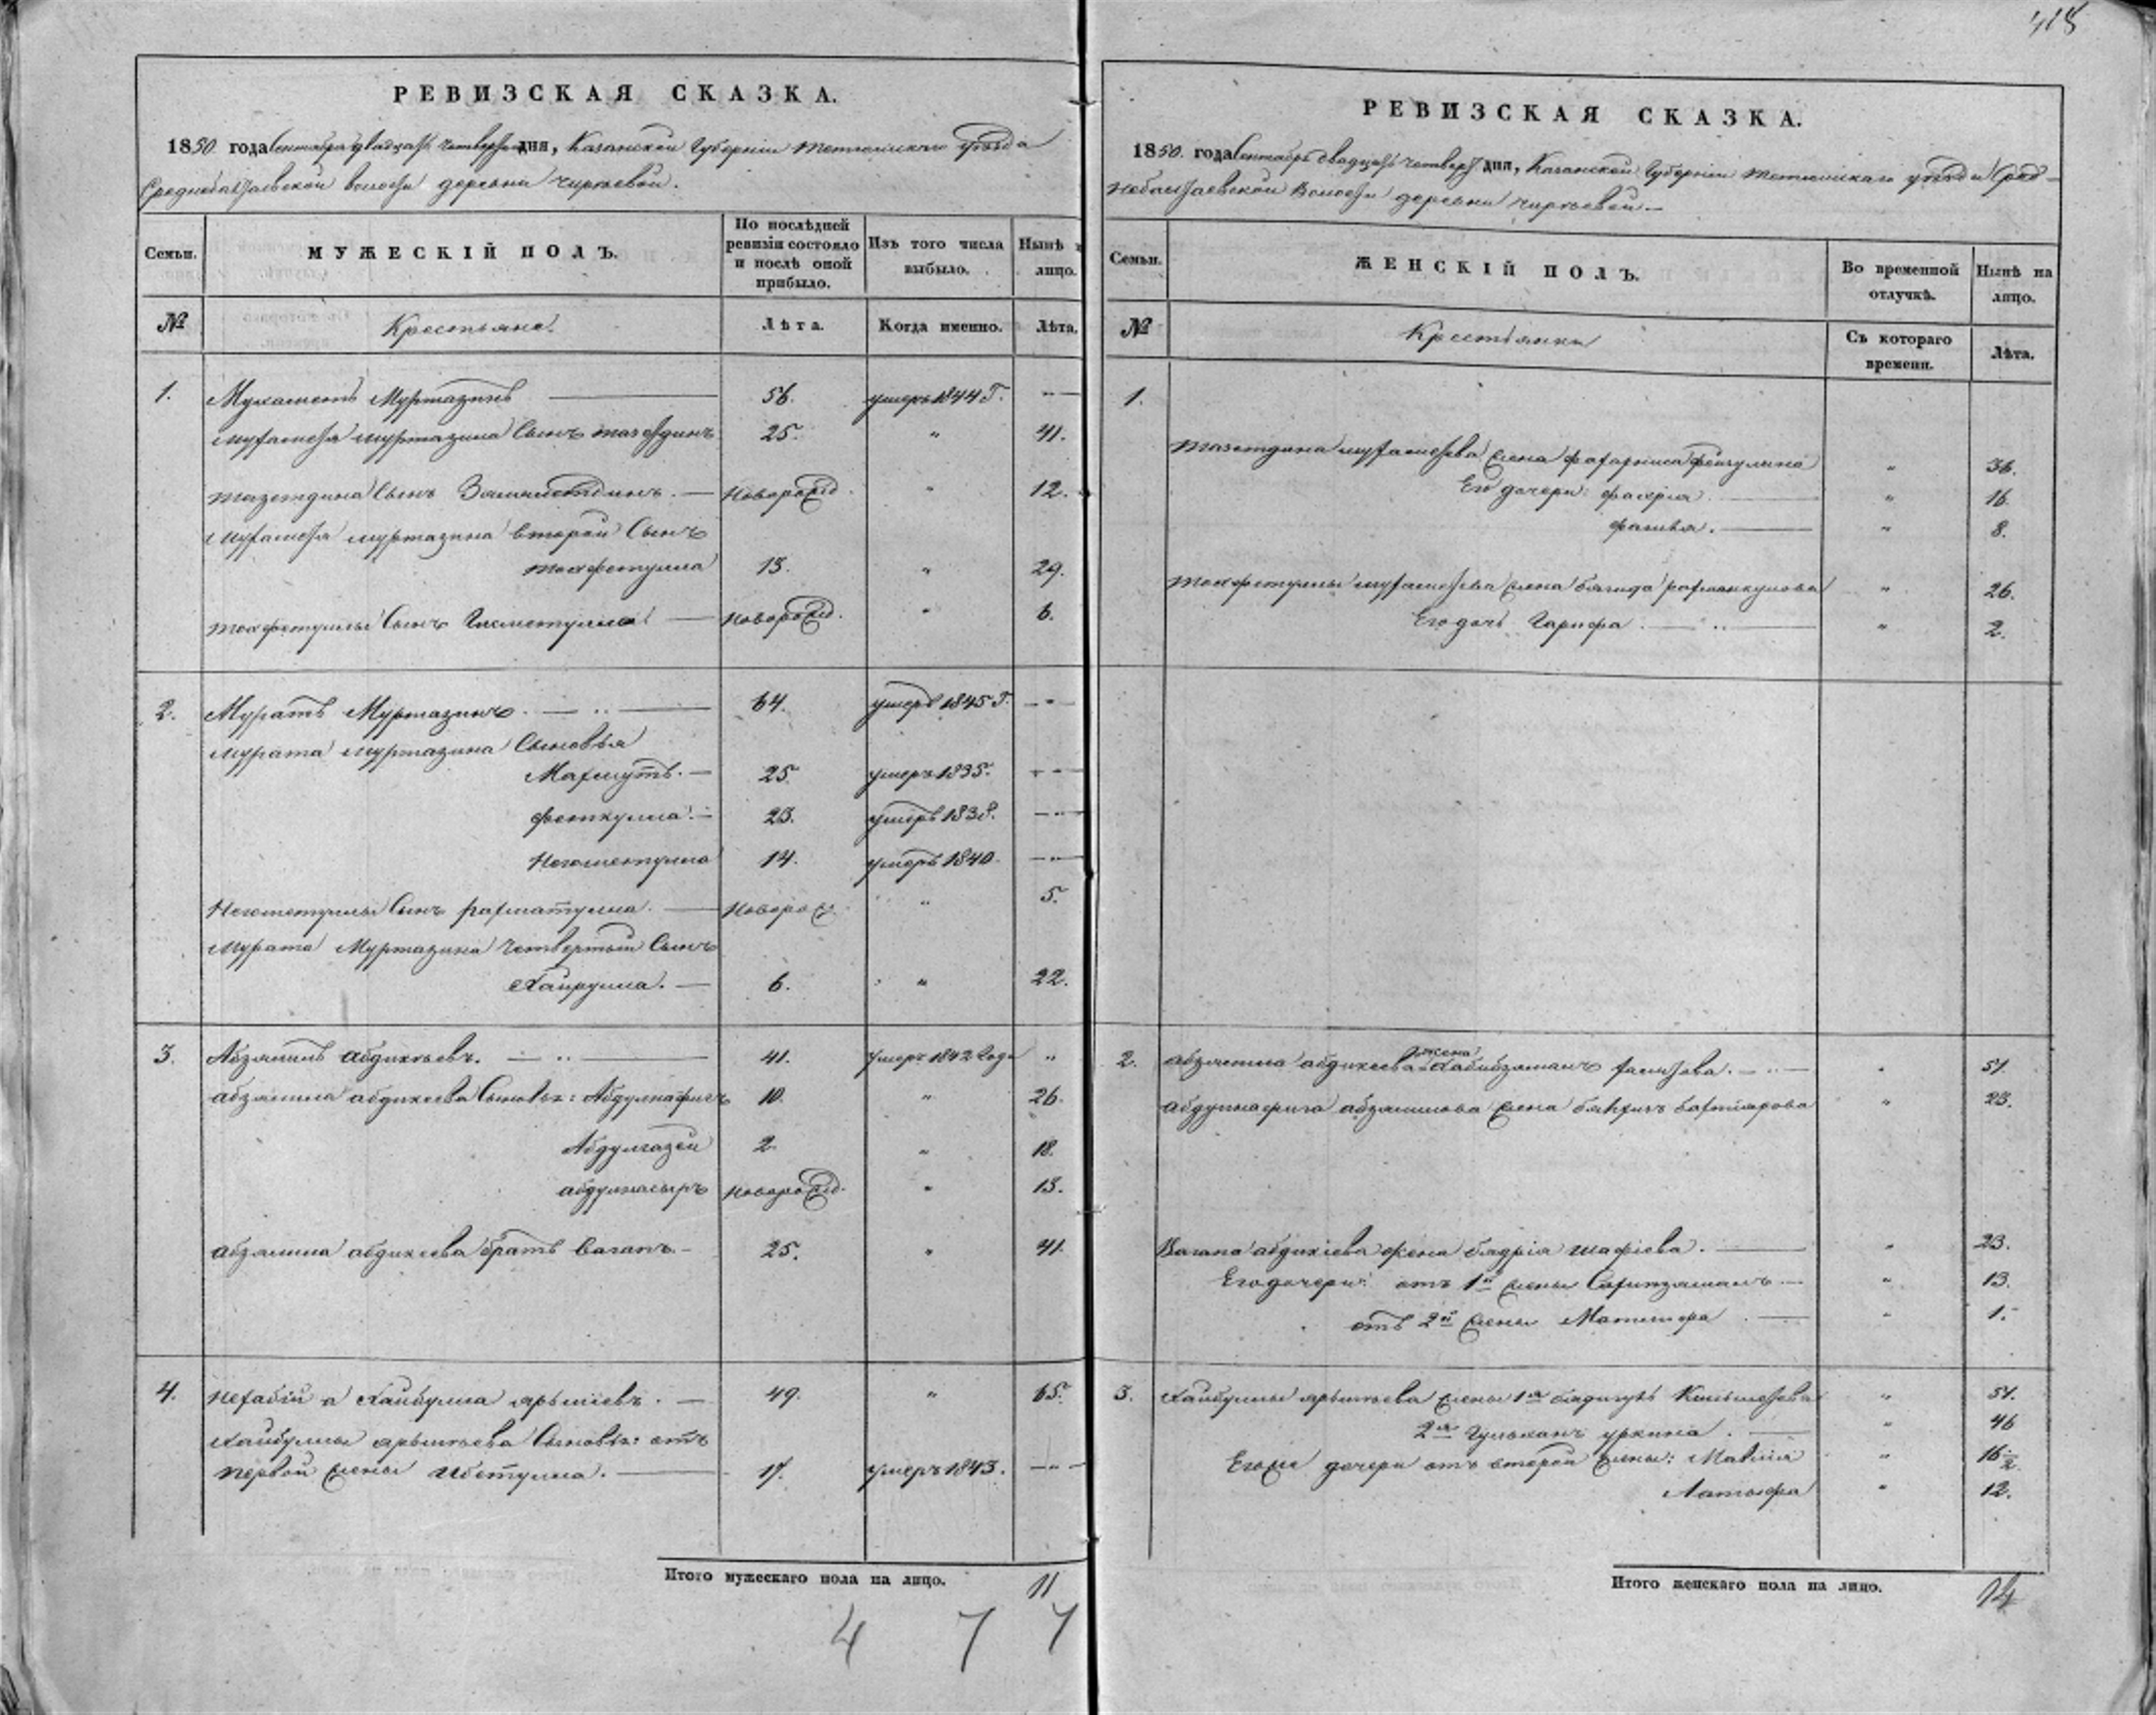 418
РЕВИЗСКАЯ СКАЗКА.
1850 года Сентября двадцать четвертого дня, Казанской Губернiи Тетюшскаго уѣзда
Среднебалтаевской волости деревни Чиркѣевой.
Семьи.
МУЖЕСКIЙ ПОЛЪ.
По послѣдней ревизiи состояло и послѣ оной прибыло.
Изъ того числа выбыло.
Нынѣ лицо.
№
Крестьяне.
Лѣта.
Когда именно.
Лѣта.
1. Мухаметъ Муртазинъ 56. умеръ 1844 Г. —
Мухаметя Муртазина Сынъ Тазетдинъ 25. " 41.
Тазетдина Сынъ Замалетдинъ. — Новорожд. " 12.
Мухаметя Муртазина второй Сынъ
Тохфетулла 13. " 29.
Тохфетуллы Сынъ Гисметулла — Новорожд. " 6.
2. Муратъ Муртазинъ. — 64. умеръ 1845 Г. —
Мурата Муртазина Сыновья
Махмутъ. — 25. умеръ 1835. —
Феткулла. — 23. умеръ 1838. —
Негметулла 14. умеръ 1840. —
Негметуллы Сынъ Рахматулла. — Новорож. " 5.
Мурата Муртазина четвертый Сынъ
Хайрулла. — 6. " 22.
3. Абзямилъ Абдикѣевъ. — 41. Умеръ 1842 Года "
Абзямила Абдикеева Сыновья: Абдулнафигъ 10. " 26.
Абдулгазей 2. " 18.
Абдулнасыръ Новорожд. " 13.
Абзямила Абдикеева братъ Вагапъ — 25. " 41.
4. Нехабiй а Хайбулла Ярьмiевъ. — 49. " 65.
Хайбуллы Ярьмѣева Сыновья: отъ
первой жены Ибетулла. — 17. умеръ 1843. —
Итого мужескаго пола на лицо. 11
4 7 7
РЕВИЗСКАЯ СКАЗКА.
1850 года Сентября двадцать четверт. дня, Казанской Губернiи Тетюшскаго уѣзда Сред-
небалтаевской Волости деревни Чиркѣевой.—
Семьи.
ЖЕНСКIЙ ПОЛЪ.
Во временной отлучкѣ.
Нынѣ на лицо.
№
Крестьянки
Съ котораго времени.
Лѣта.
1.
Тазетдина Мухаметева жена Фейзулина " 36.
Его дочери: Фахрiя. — " 16.
— " 8.
Тохфетуллы Мухаметева жена Рахманкулова " 26.
Его дочь Гарифа. — " 2.
2. Абзямила Абдикеева жена Хабибзяманъ — " 51.
Абдулнафига Абзямилова жена Бахтiярова " 23.
Вагапа Абдикiева жена Бядрiя Шафiева. — " 23.
Его дочери: отъ 1й жены Сафитзяманъ — " 13.
отъ 2й жены — " 1.
3. Хайбуллы Ярьмѣева жены 1я " 51.
2я Гульханъ Уркина. — " 46
Его же дочери отъ второй жены: " 16 1/2
Латыфа " 12.
Итого женскаго пола на лицо. 14